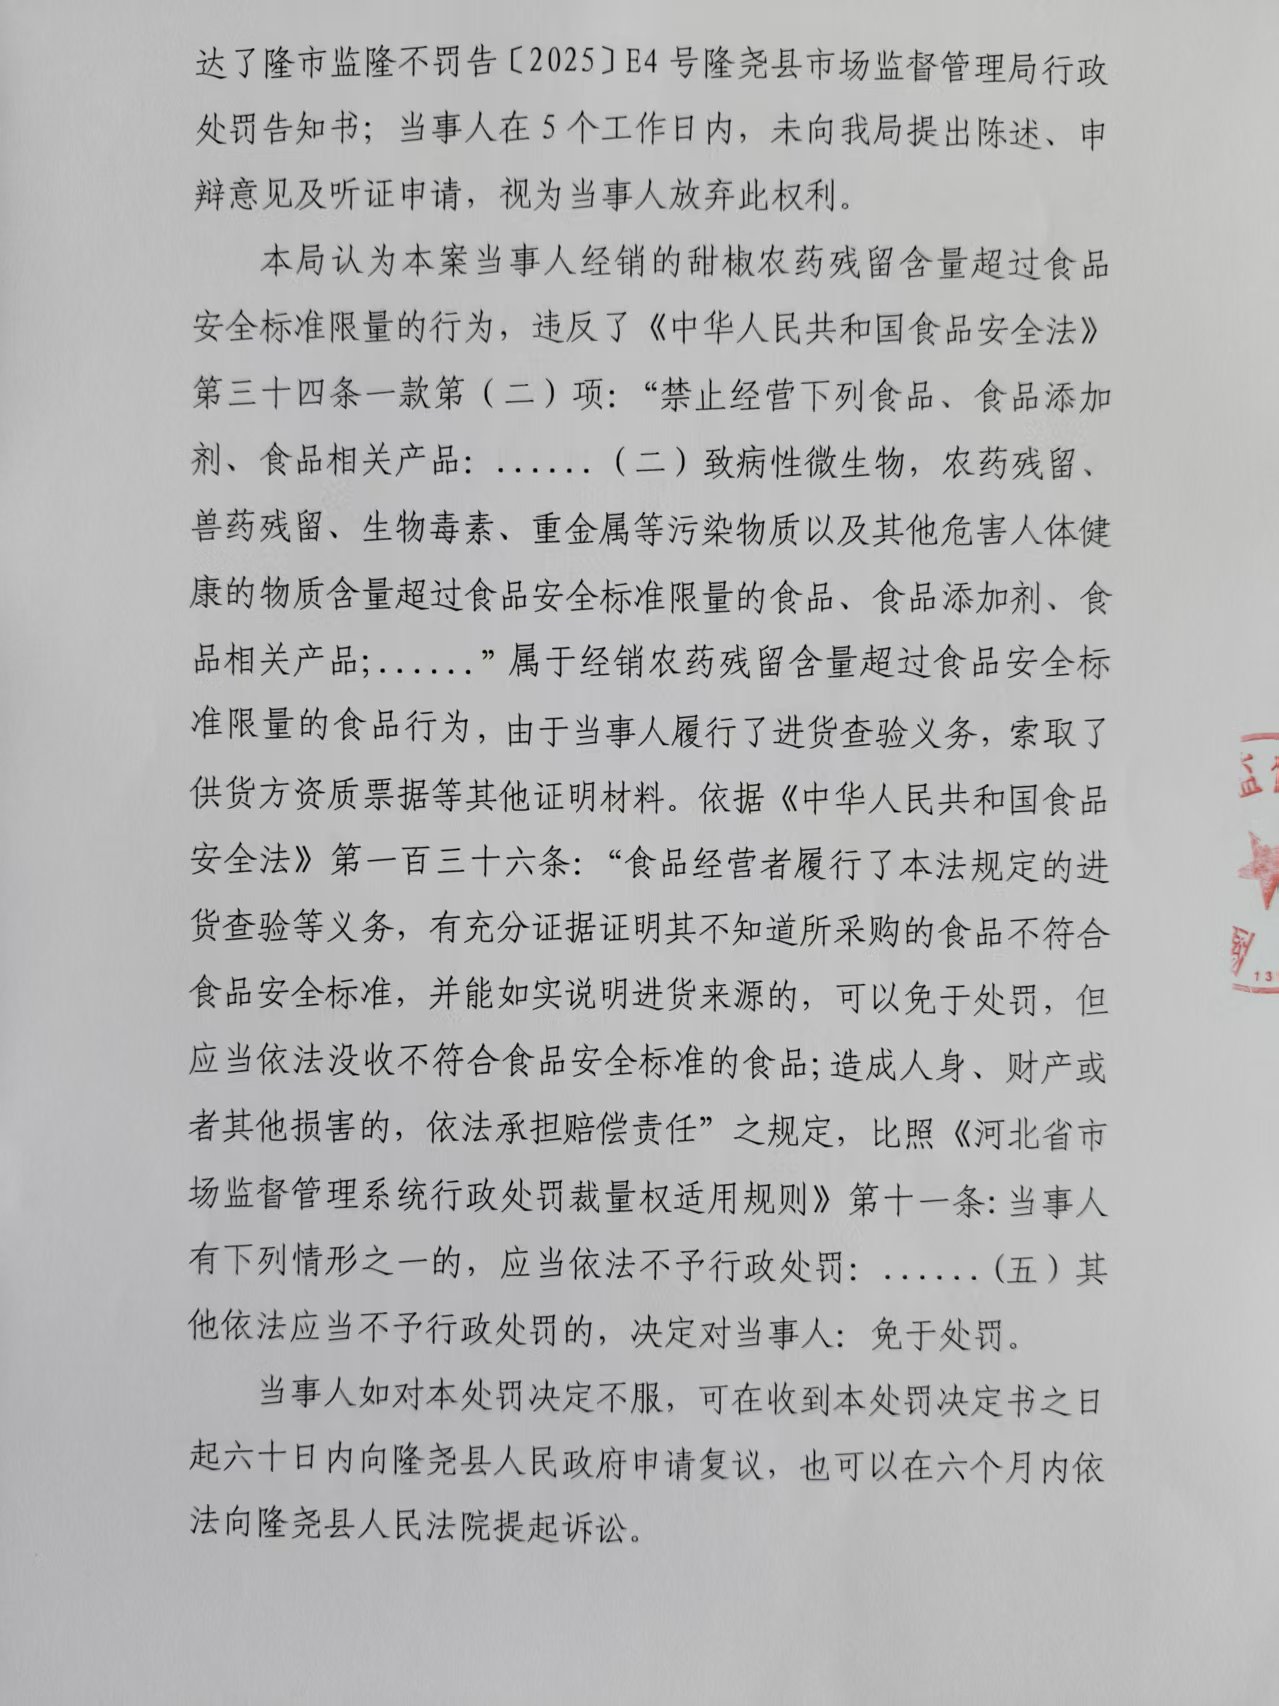 达了隆市监隆不罚告〔2025〕E4号隆尧县市场监督管理局行政
处罚告知书；当事人在5个工作日内，未向我局提出陈述、申
辩意见及听证申请，视为当事人放弃此权利。
本局认为本案当事人经销的甜椒农药残留含量超过食品
安全标准限量的行为，违反了《中华人民共和国食品安全法》
第三十四条一款第（二）项：“禁止经营下列食品、食品添加
剂、食品相关产品：......（二）致病性微生物，农药残留、
兽药残留、生物毒素、重金属等污染物质以及其他危害人体健
康的物质含量超过食品安全标准限量的食品、食品添加剂、食
品相关产品;......”属于经销农药残留含量超过食品安全标
准限量的食品行为，由于当事人履行了进货查验义务，索取了
供货方资质票据等其他证明材料。依据《中华人民共和国食品
安全法》第一百三十六条：“食品经营者履行了本法规定的进
货查验等义务，有充分证据证明其不知道所采购的食品不符合
食品安全标准，并能如实说明进货来源的，可以免于处罚，但
应当依法没收不符合食品安全标准的食品；造成人身、财产或
者其他损害的，依法承担赔偿责任”之规定，比照《河北省市
场监督管理系统行政处罚裁量权适用规则》第十一条：当事人
有下列情形之一的，应当依法不予行政处罚：......（五）其
他依法应当不予行政处罚的，决定对当事人：免于处罚。
当事人如对本处罚决定不服，可在收到本处罚决定书之日
起六十日内向隆尧县人民政府申请复议，也可以在六个月内依
法向隆尧县人民法院提起诉讼。
监
13